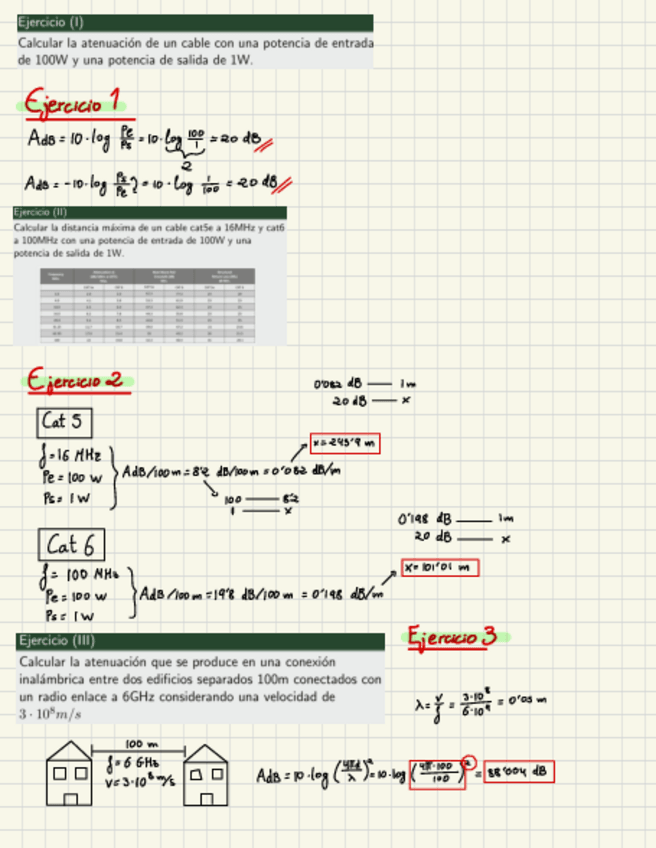 Ejercicio (I)
Calcular la atenuación de un cable con una potencia de entrada
de 100W y una potencia de salida de 1W.
Ejercicio 1
AdB = 10·log Pe/Ps = 10·log 100/1 = 20 dB
2
AdB = -10·log Ps/Pe = 10·log 1/100 = 20 dB
Ejercicio (II)
Calcular la distancia máxima de un cable cat5e a 16MHz y cat6
a 100MHz con una potencia de entrada de 100W y una
potencia de salida de 1W.
Ejercicio 2
0'082 dB —— 1m
20 dB —— x
Cat 5
x=243'9 m
f=16 MHz
Pe = 100 W
Ps = 1 W
AdB/100m = 8'2 dB/100m = 0'082 dB/m
100 —— 8'2
1 —— x
0'198 dB —— 1m
20 dB —— x
Cat 6
x=101'01 m
f = 100 MHz
Pe = 100 W
Ps = 1 W
AdB/100m = 19'8 dB/100m = 0'198 dB/m
Ejercicio (III)
Ejercicio 3
Calcular la atenuación que se produce en una conexión
inalámbrica entre dos edificios separados 100m conectados con
un radio enlace a 6GHz considerando una velocidad de
3 · 10⁸m/s
λ = v/f = 3·10⁸/6·10⁹ = 0'05 m
100 m
f = 6 GHz
v = 3·10⁸ m/s
AdB = 10·log (4πd/λ)² = 10·log (4π·100/100)² = 88'004 dB